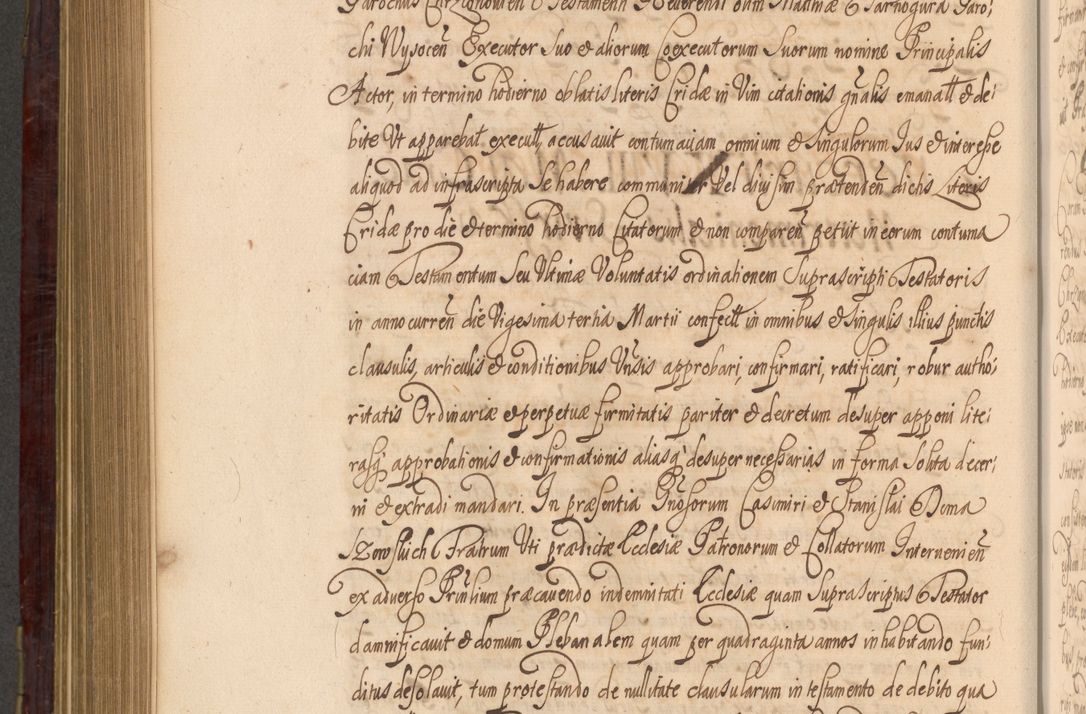 Parochus Chrzchovien Testamenti Reverendi olim Mathiæ Sarnogura Paro:
chi Wysocen̄ Executor Suo et aliorum Coexecutorum Suorum nomine Principalis
Actor, in termino hodierno oblatis literis Cridæ in Vim citationis gn̄alis emanatt et de:
bite Vt apparebat executt, accusavit contumaciam omnium et Singulorum Jus et interesse
aliquod ad infrascripta Se habere communiter Vel divisim prætenden̄ dictis Literis
Cridæ pro die et termino hodierno Citatorum et non comparen̄ petiit in eorum contuma
ciam Testamentum Seu Vltimæ Voluntatis ordinationem Suprascripti Testatoris
in anno curren̄ die Vigesima tertia Martii confectt in omnibus et Singulis illius punctis
clausulis, articulis et conditionibus Vn̄sis approbari, confirmari, ratificari, robur autho:
ritatis Ordinariæ et perpetuæ firmitatis pariter et decretum desuper apponi lite:
rasq approbationis et confirmationis aliasq desuper necessarias in forma Solita decer:
ni et extradi mandari. In præsentia Gn̄osorum Casimiri et Stanislai Dema
Szowskich Fratrum Vti prædictæ Ecclesiæ Patronorum et Collatorum Intervenien̄
ex adverso Prin̄lium præcavendo indemnitati Ecclesiæ quam Suprascriptus Testator
damnificavit et domum Plebanalem quam per quadraginta annos inhabitando fun:
ditus desolavit, tum protestando de nullitate clausularum in testamento de debito qua